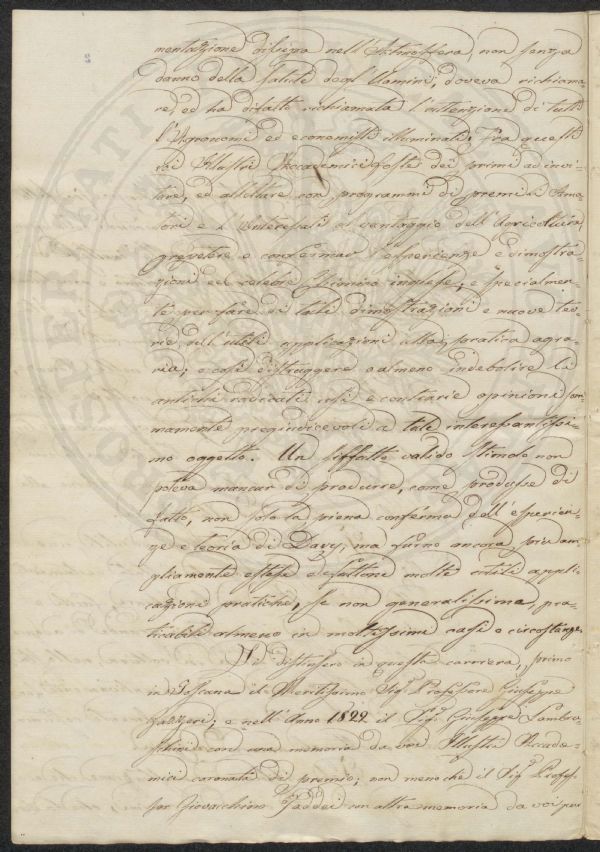 mentazione disegna nell'Atmosfera, non senza
danno della salute degl'Uomini, doveva richiama-
re, ed ha difatto richiamata l'attenzione di tutti
l'Agronomi ed economisti illuminati. Fra questi
voi Illustri Accademici foste dei primi ad invi-
tare, ed allettare con programmi di premi gl'Ama-
tori e l'Interessati al vantaggio dell'Agricoltura,
a ripetere e confermar l'esperienze e dimostra-
zioni del celebre Chimico inglese, e specialmen-
te per fare di tali dimostrazioni e nuove teo-
rie dell'utili applicazioni alla pratica agra-
ria; e così distruggere o almeno indebolire le
antiche radicate usi e contrarie opinioni som-
mamente pregiudicevoli a tale interessantissi-
mo oggetto. Un siffatto valido stimolo non
poteva mancar di produrre, come produsse di
fatto, non solo la piena conferma dell'esperien-
ze e teoria di Davy, ma furno ancora più am-
pliamente estese e fattone molte utili appli-
cazioni pratiche, se non generalissime, pra-
ticabili almeno in moltissimi casi e circostanze.
Si distinsero in questa carriera, primo
in Toscana il Meritissimo Sig.r Professore Giuseppe
Gazzeri; e nell'Anno 1822 il Sig.r Giuseppe Lambru-
schini con una memoria da voi Illustri Accade-
mici coronata di premio; non meno che il Sig.r Profes-
sor Giovacchino Taddei con altra memoria da voi pur